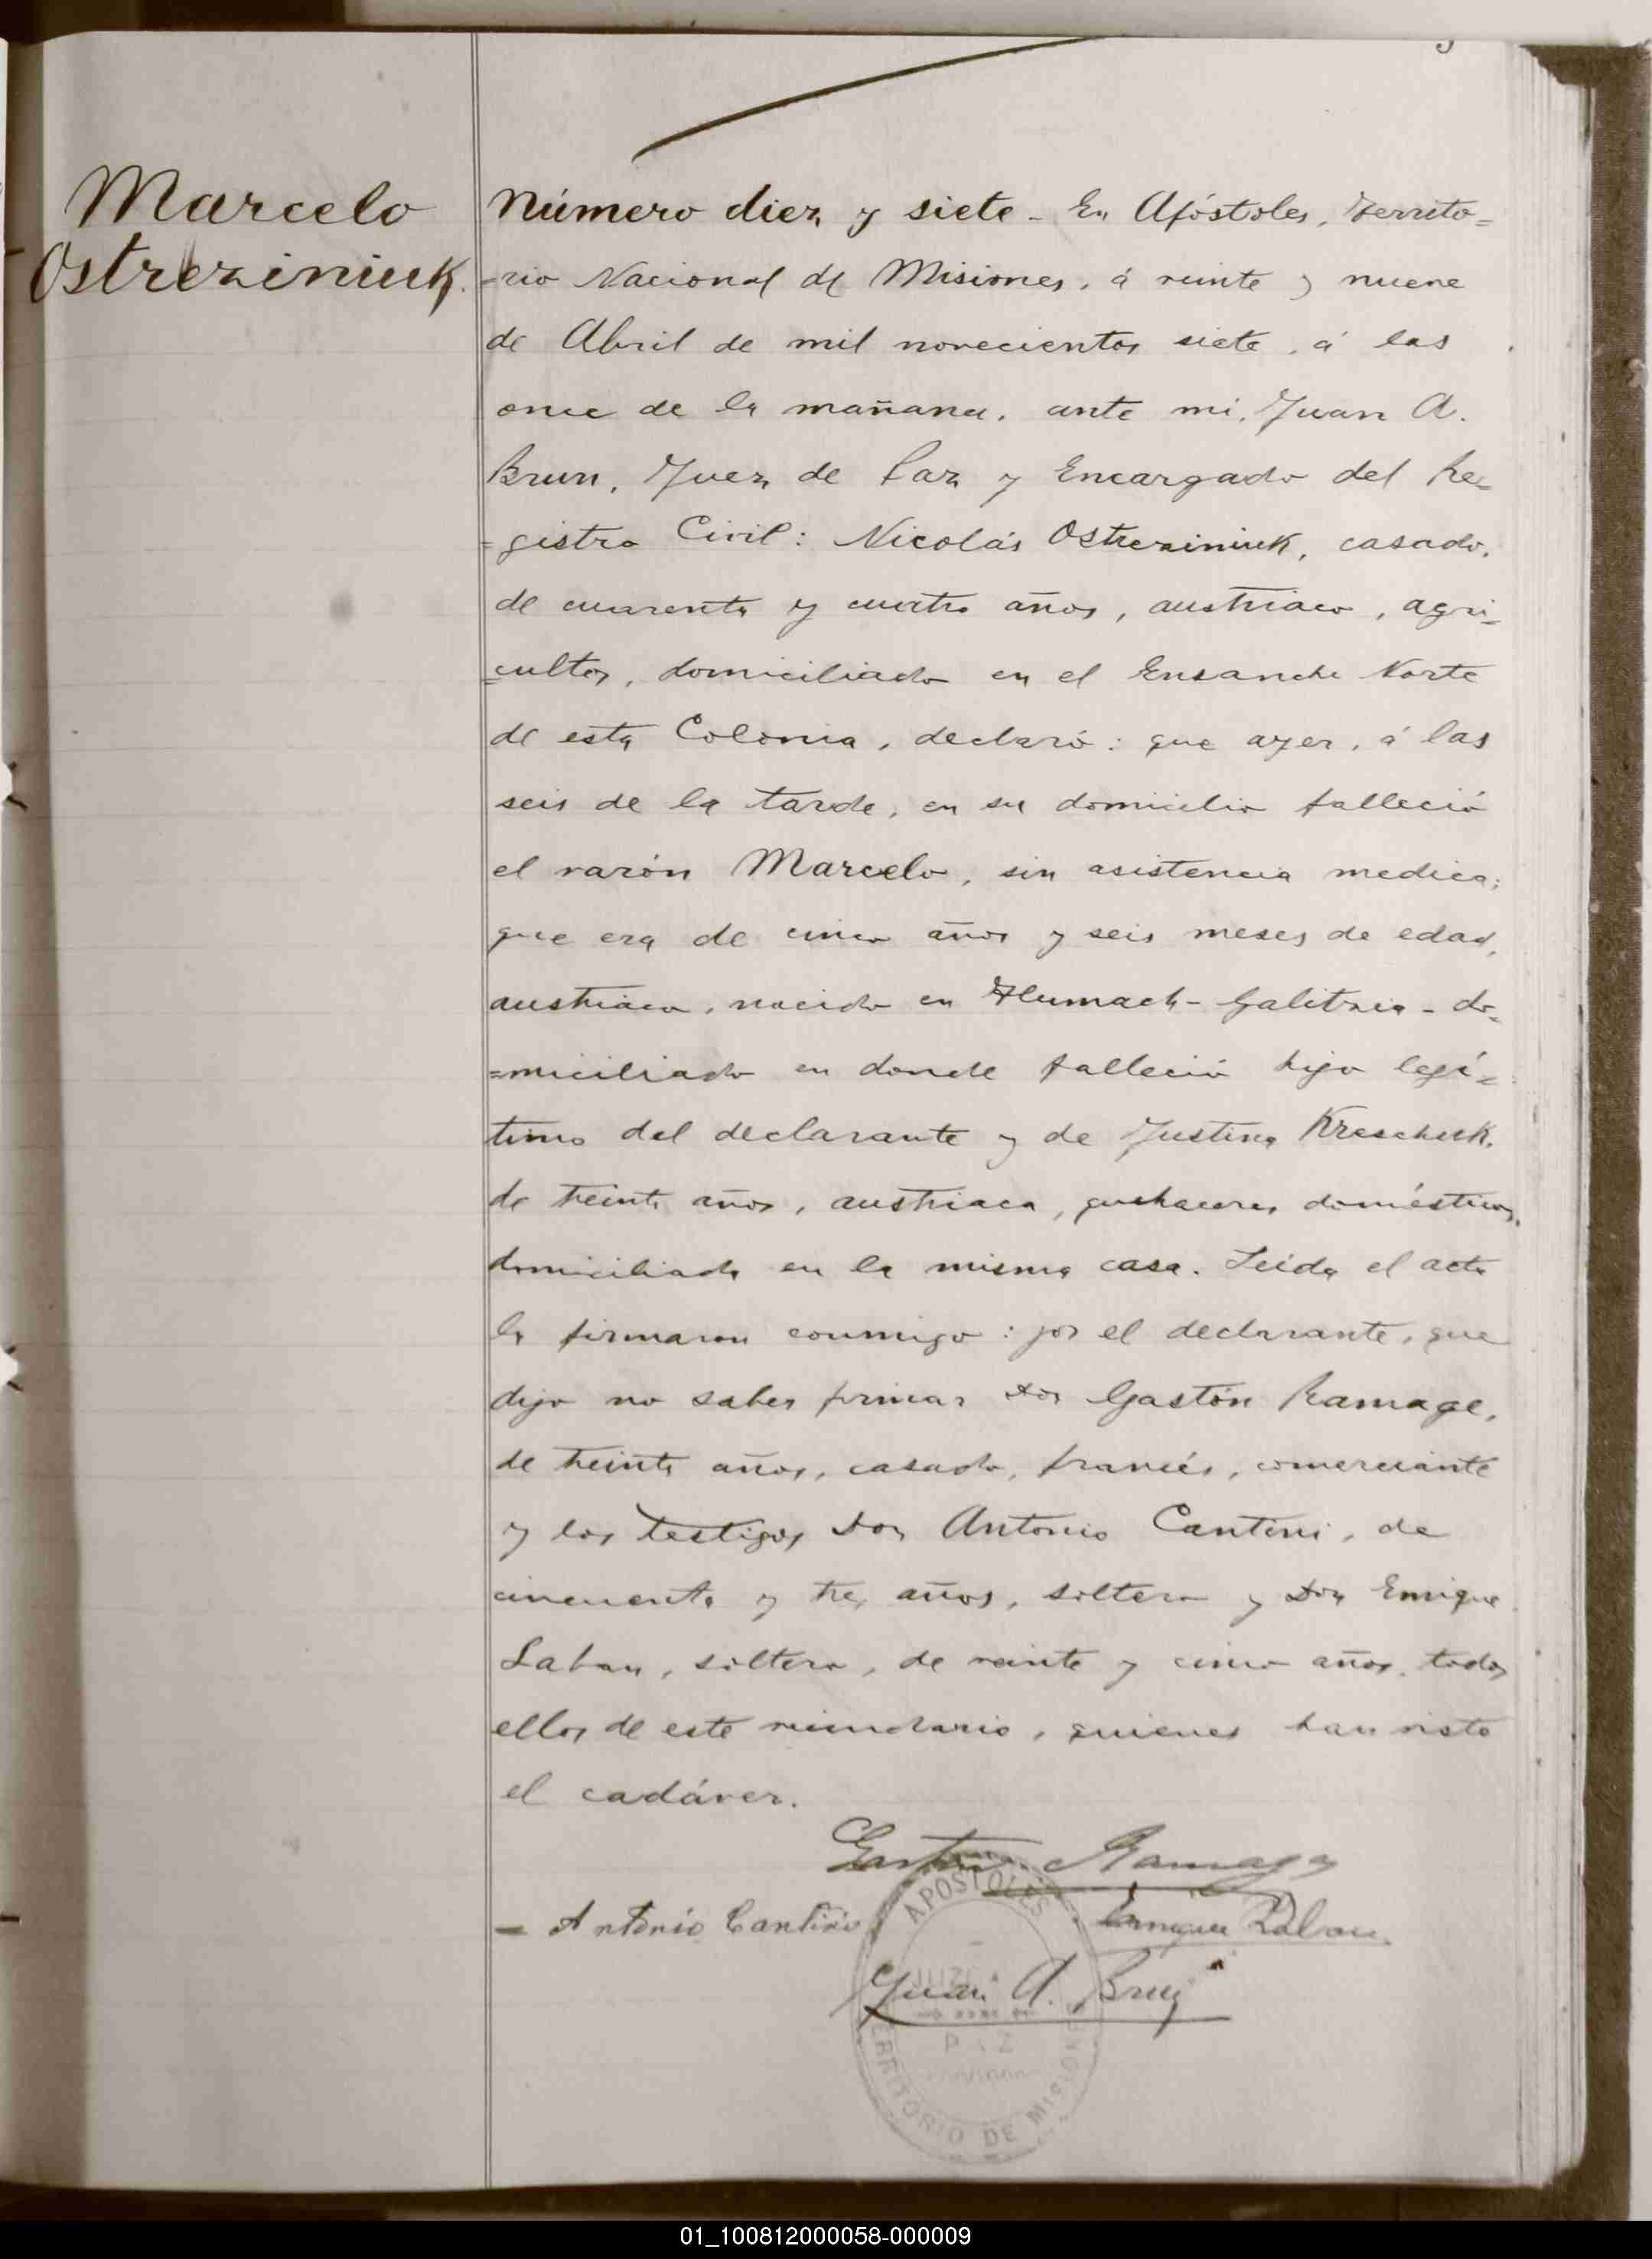 Marcelo
Ostreziniuk.
Número diez y siete - En Apóstoles, Territo=
=rio Nacional de Misiones, á veinte y nueve
de Abril de mil novecientos siete, á las
once de la mañana, ante mi, Juan A.
Brun, Juez de Paz y Encargado del Re=
=gistro Civil: Nicolás Ostreziniuk, casado,
de cuarenta y cuatro años, austriaco, agri=
=cultor, domiciliado en el Ensanche Norte
de esta Colonia, declaró: que ayer, á las
seis de la tarde, en su domicilio falleció
el varón Marcelo, sin asistencia medica;
que era de cinco años y seis meses de edad,
austriaco, nacido en Tlumach - Galitzia - do=
=miciliado en donde falleció hijo legí=
timo del declarante y de Justina Kreschuk,
de treinta años, austriaca, quehaceres domésticos,
domiciliada en la misma casa. Leída el acta
la firmaron conmigo: por el declarante, que
dijo no saber firmar Don Gastón Ramage,
de treinta años, casado, francés, comerciante
y los testigos Don Antonio Cantini, de
cincuenta y tres años, soltero y Don Enrique
Laban, soltero, de veinte y cinco años, todos
ellos de este vecindario, quienes han visto
el cadáver.
Gaston Ramage
- Antonio Cantini
Enrique Laban
Juan A. Brun
APOSTOLES
JUZG
P Z
TERRITORIO DE MISIONES
01_100812000058-000009